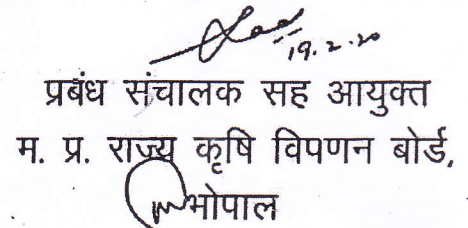 19.2.20
प्रबंध संचालक सह आयुक्त
म. प्र. राज्य कृषि विपणन बोर्ड,
भोपाल